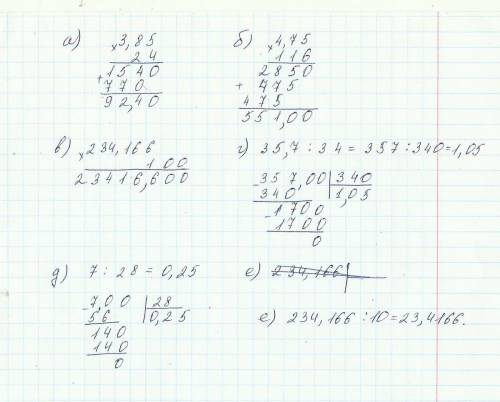 а) × 3,85
24
+ 1540
770
92,40
б) × 4,75
116
2850
+ 475
475
551,00
в) × 234,166
100
23416,600
г) 35,7 : 34 = 357 : 340 = 1,05
- 357,00 | 340
340 | 1,05
- 1700
1700
0
д) 7 : 28 = 0,25
- 7,00 | 28
56 | 0,25
140
140
0
е) 234,166
е) 234,166 : 10 = 23,4166.